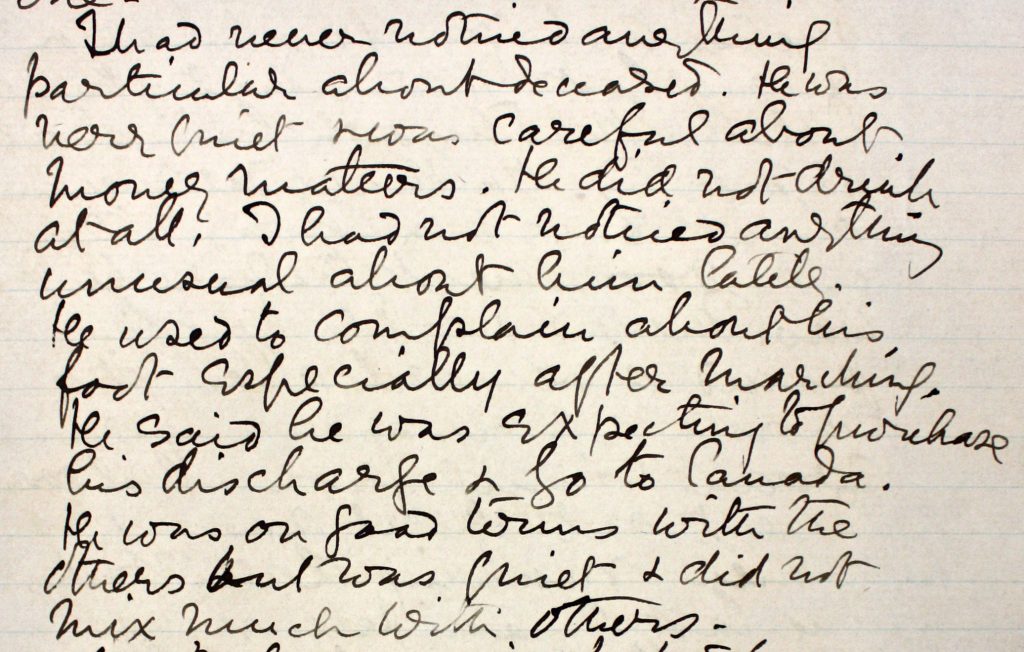 I had never noticed anything
particular about deceased. He was
very quiet & was careful about
money matters. He did not drink
at all. I had not noticed anything
unusual about him lately.
He used to complain about his
foot especially after marching.
He said he was expecting to purchase
his discharge & go to Canada.
He was on good terms with the
others but was quiet & did not
mix much with others.